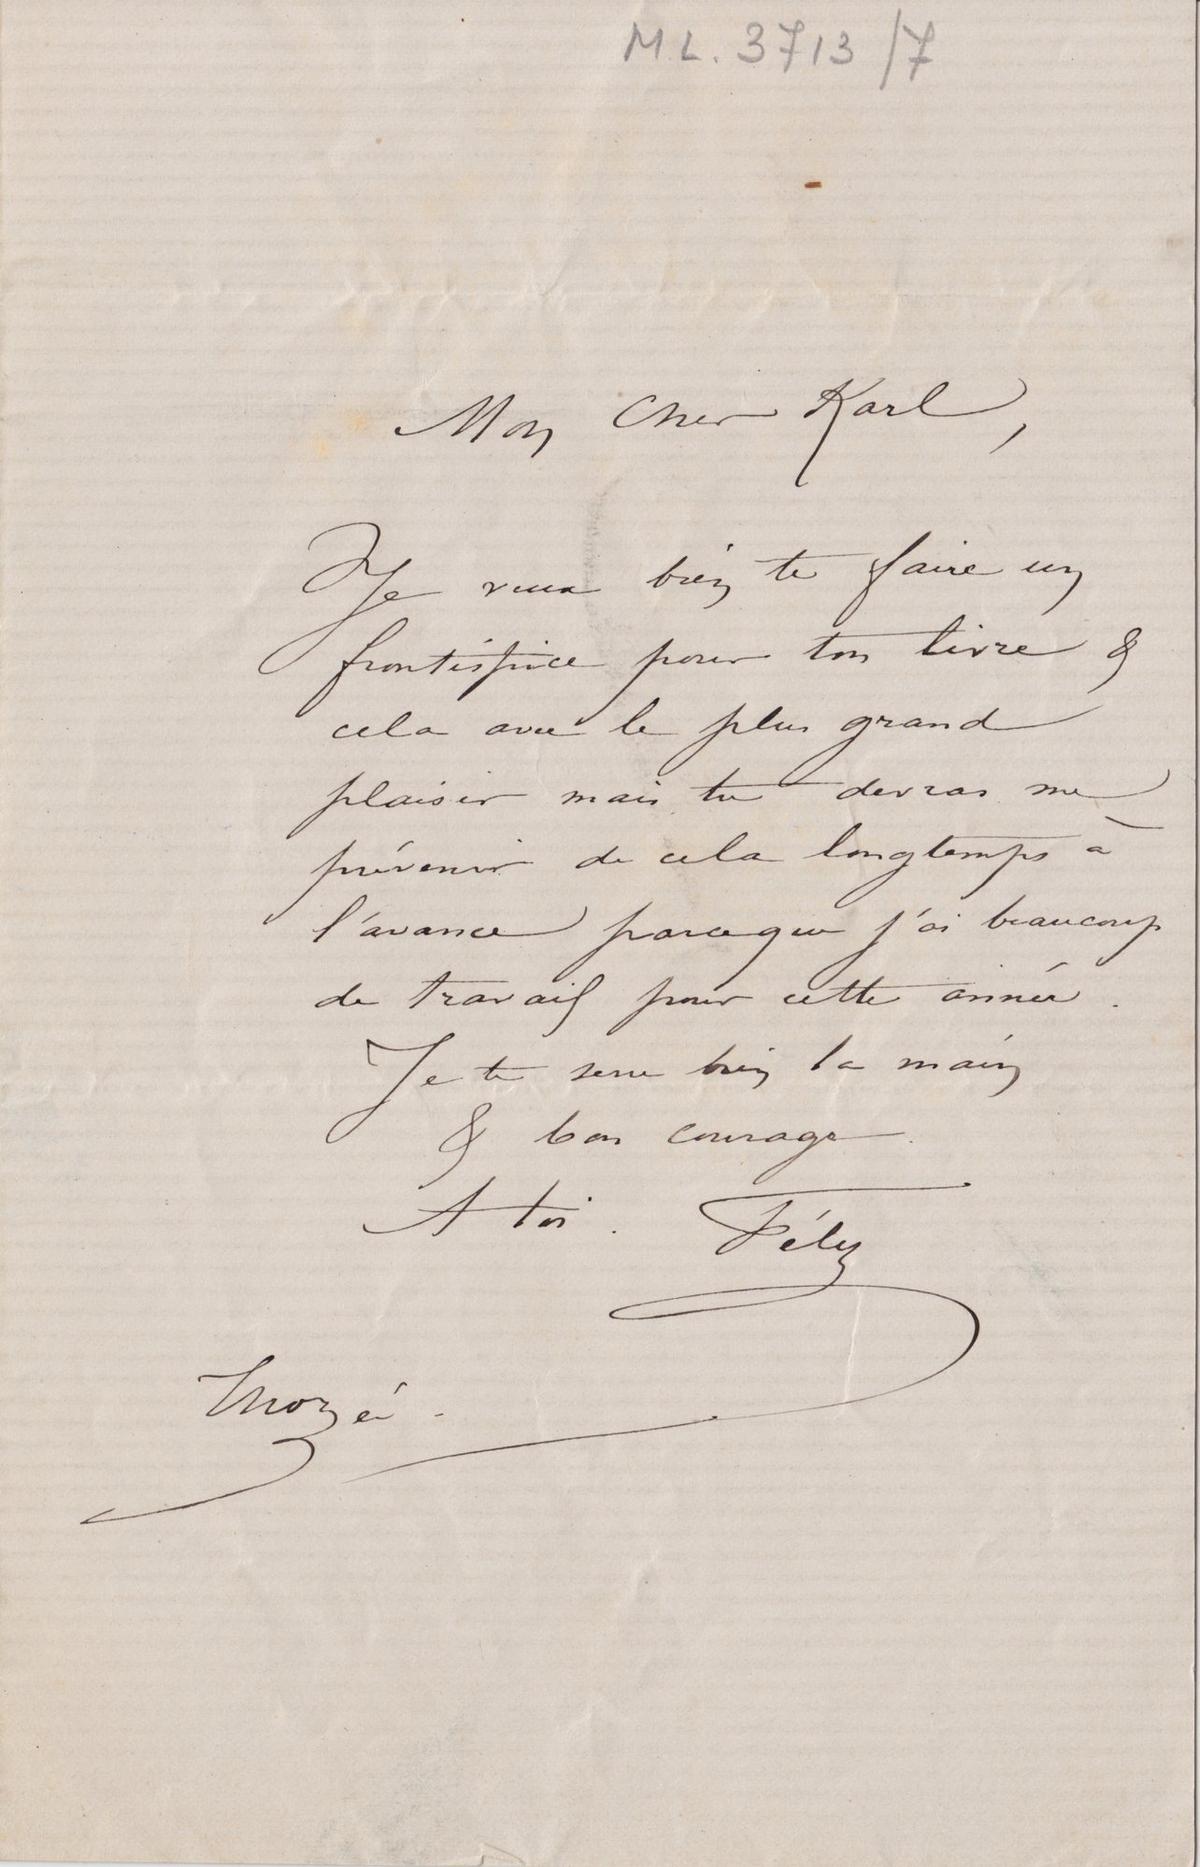 M.L. 3713/7
Mon Cher Karl,
Je veux bien te faire un
frontispice pour ton livre &
cela avec le plus grand
plaisir mais tu devras me
prévenir de cela longtemps à
l'avance parceque j'ai beaucoup
de travail pour cette année.
Je te serre bien la main
& bon courage.
A toi. Fély
Thozée.